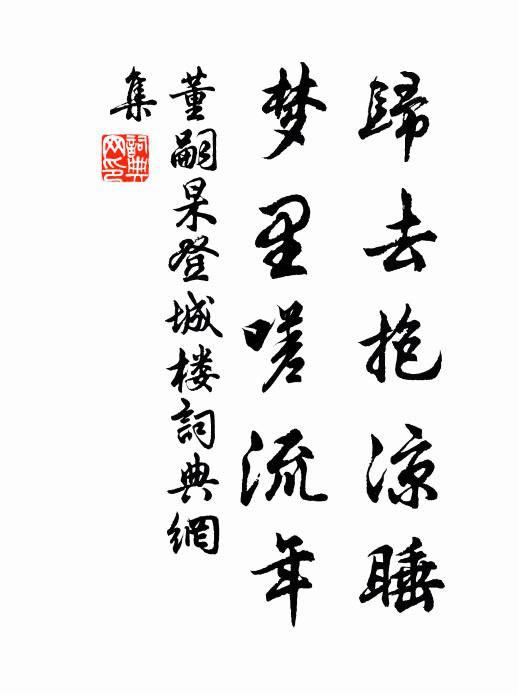 歸去抱凉睡
梦里嗟流年
董嗣杲登城楼詞典網
集
詞典网印